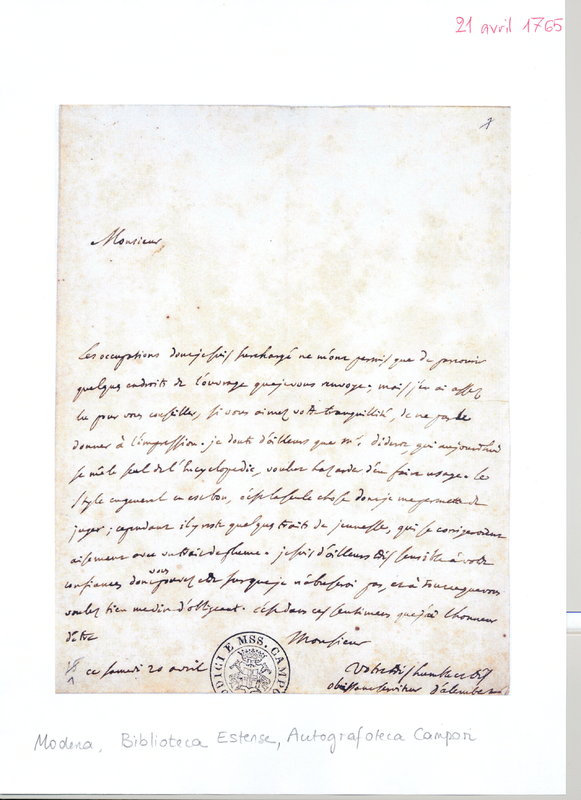 21 avril 1765
Monsieur
Les occupations dont je suis surchargé ne m'ont permis que de parcourir
quelques endroits de l'ouvrage que je vous renvoye; mais j'en ai assez
lu pour vous conseiller, si vous aimez votre tranquillité, de ne pas le
donner à l'impression. je doute d'ailleurs que Mr. Diderot, qui aujourdhui
se mêle seul de l'Encyclopédie, voulut hazarder d'en faire usage. le
style en general en est bon, c'est la seule chose dont je me permette de
juger; cependant il y reste quelques traits de jeunesse, qui se corrigeroient
aisement avec un trait de plume. je suis d'ailleurs très sensible à votre
confiance, dont vous pouvez être sur que je n'abuserai pas, et à tout ce que vous
voulez bien me dire d'obligeant. c'est dans ces sentimens que j'ai l'honneur
d'être
Monsieur
ce samedi 20 avril
CODICI E MSS. CAMPO
Votre très humble et très
obéissant serviteur d'Alembert
Modena, Biblioteca Estense, Autografoteca Campori